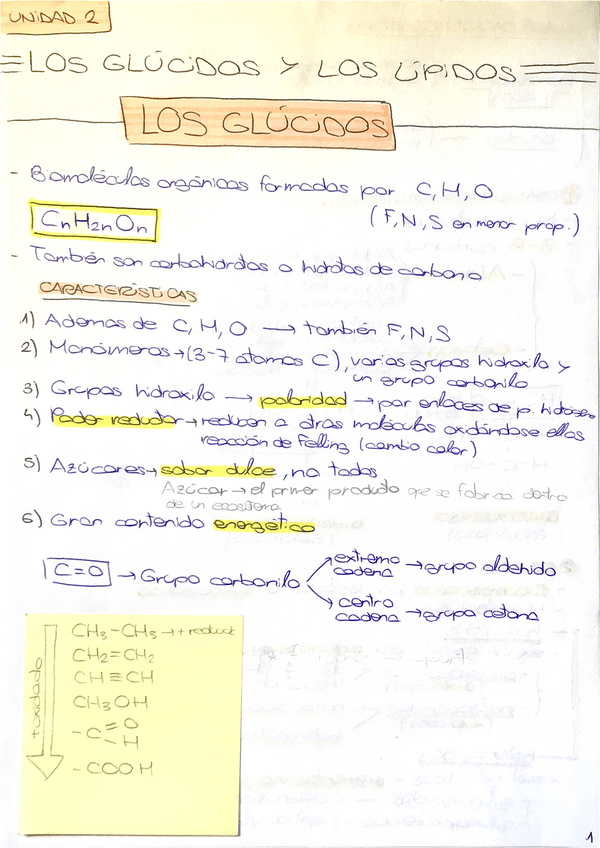 UNIDAD 2
LOS GLÚCIDOS Y LOS LÍPIDOS
LOS GLÚCIDOS
- Biomoléculas orgánicas formadas por C, H, O
CnH2nOn (F, N, S en menor prop.)
- También son carbohidratos o hidratos de carbono
CARACTERÍSTICAS
1) Ademas de C, H, O → también F, N, S
2) Monómeros → (3-7 atomos C), varios grupos hidroxilo y
un grupo carbonilo
3) Grupos hidroxilo → polaridad → por enlaces de p. hidógeno
4) Poder reductor → reducen a otras moléculas oxidándose ellas
reacción de Felling (cambio color)
5) Azúcares → sabor dulce, no todos
Azúcar → el primer producto que se fabrica dentro
de un ecosistema
6) Gran contenido energético
C=O → Grupo carbonilo
extremo cadena → grupo aldehido
centro cadena → grupo cetona
+ oxidado
CH3-CH3 → + reduct
CH2=CH2
CH≡CH
CH3OH
-C=O
-H
-COOH
1